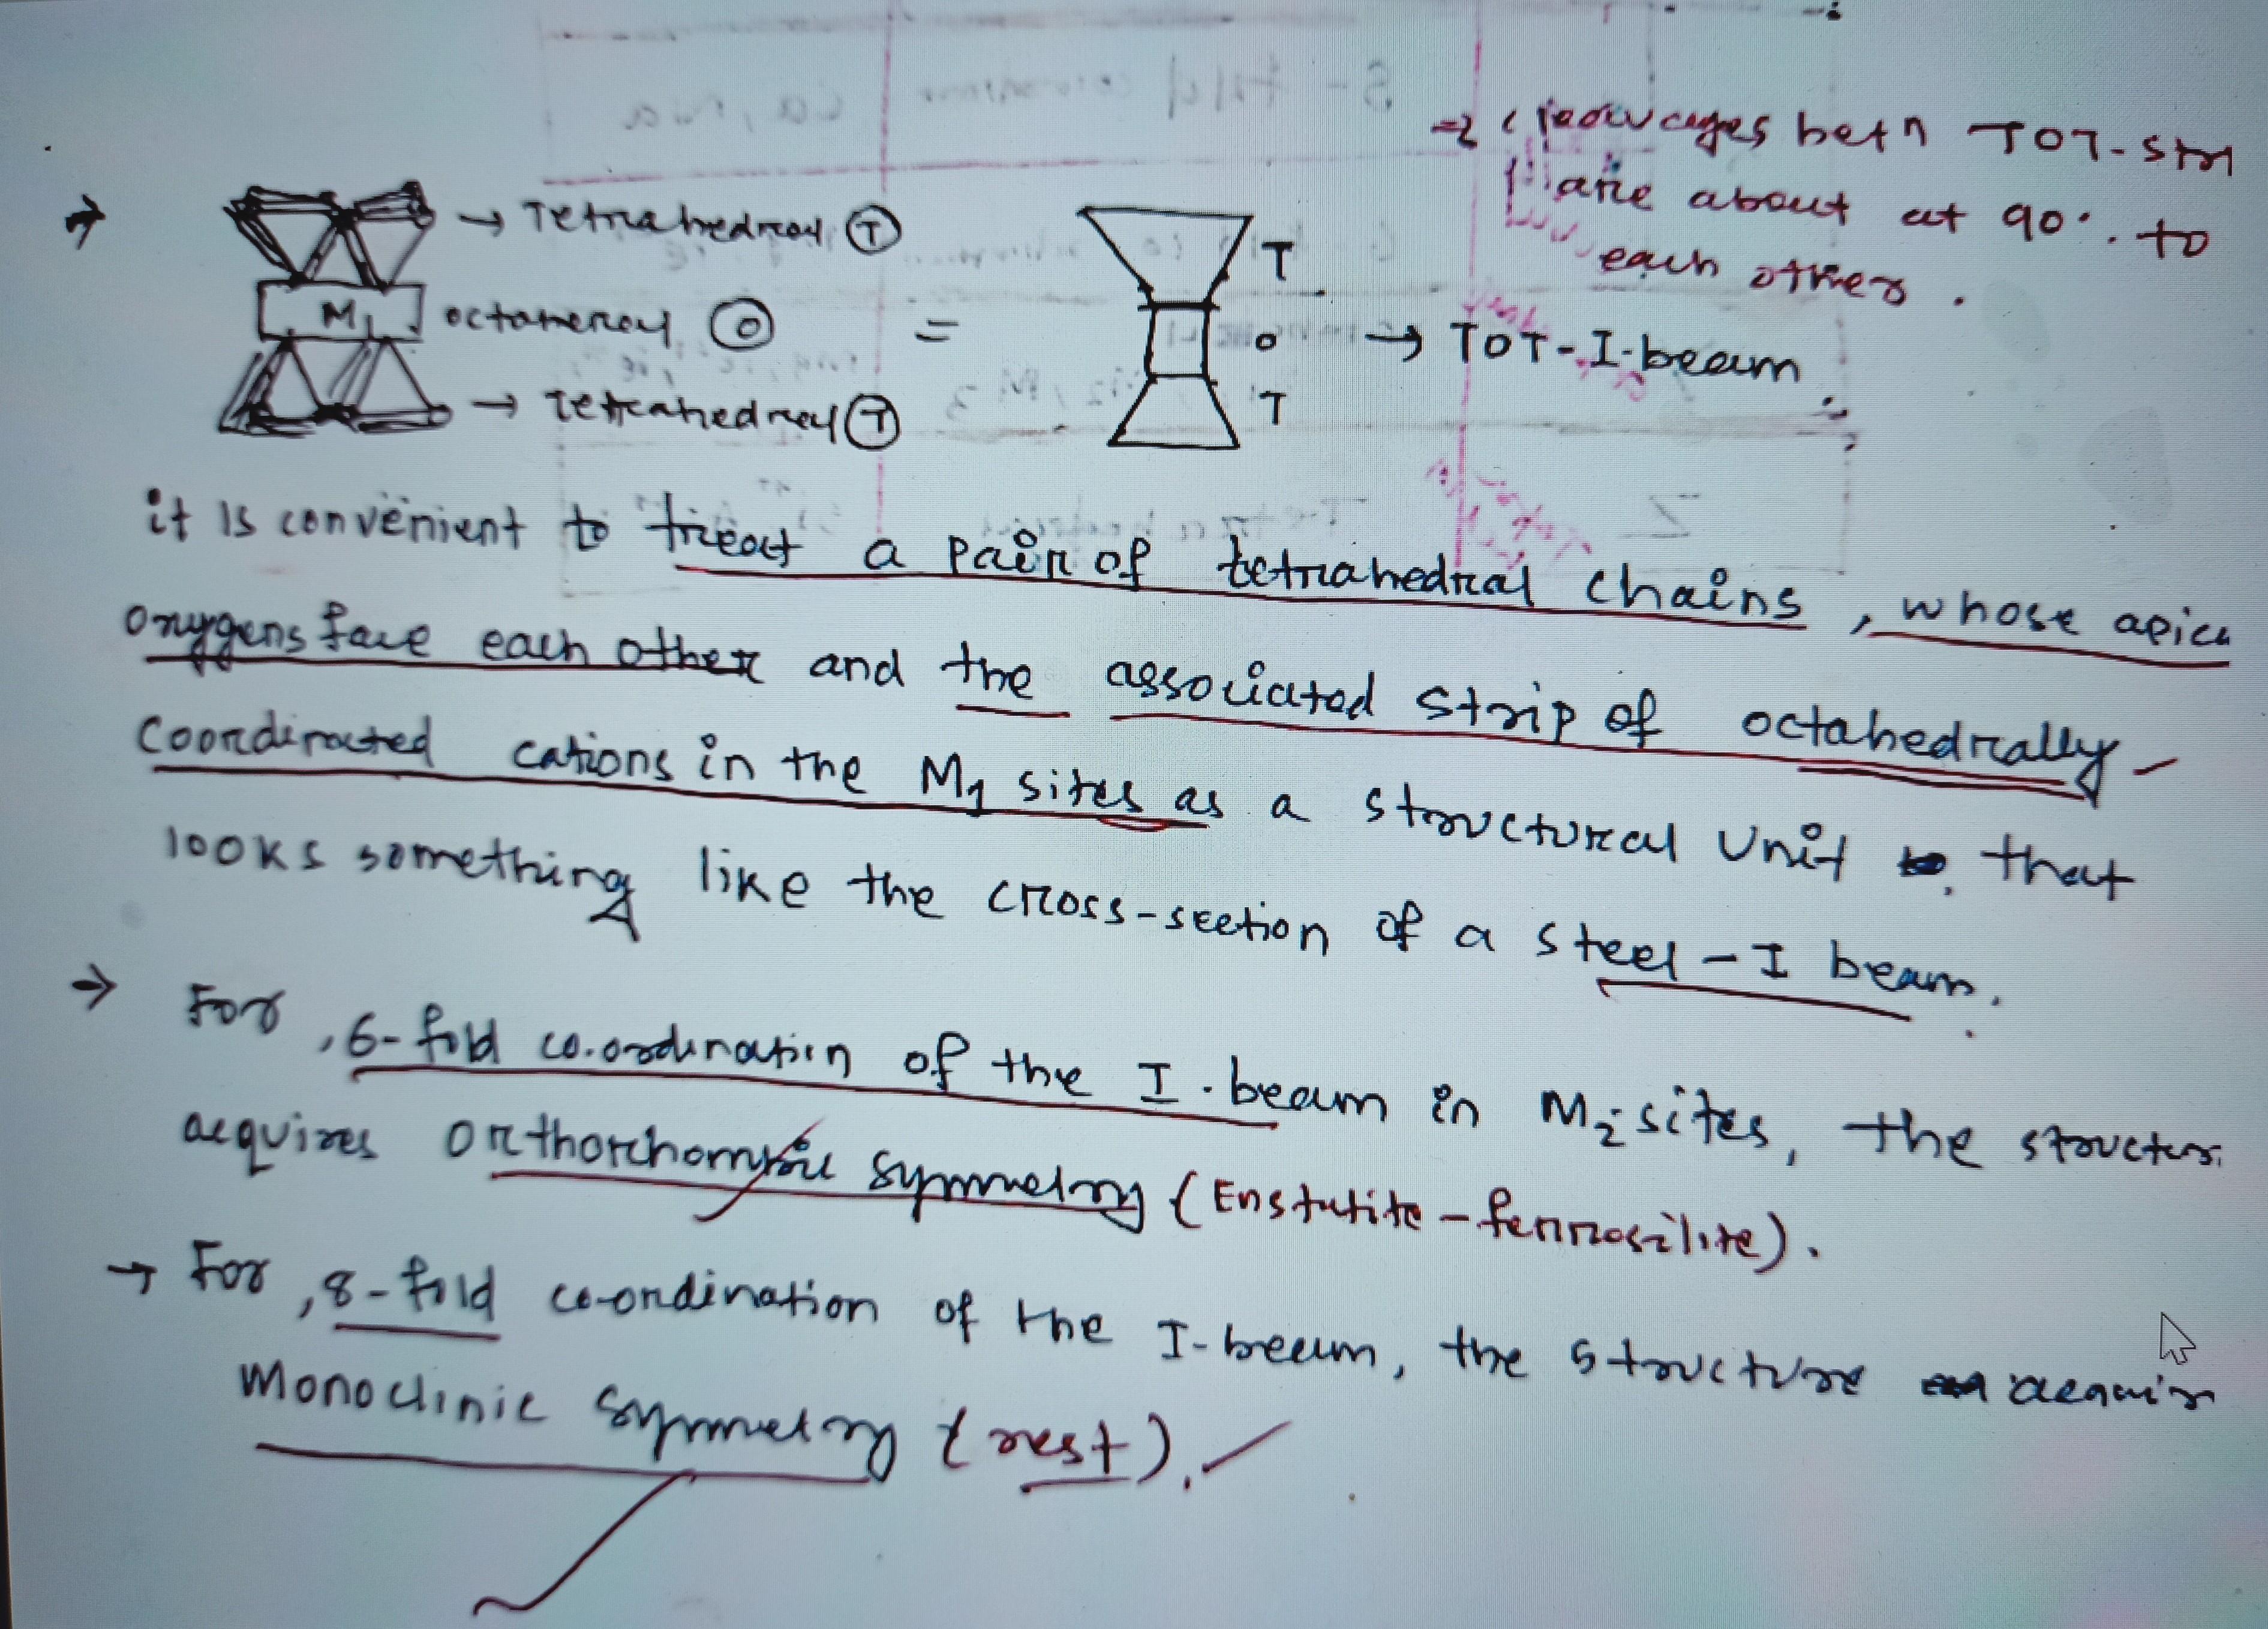 → Cleavages betn TOT-str
are about at 90°. to
each other.
→ Tetrahedral Ⓣ
M1 octahedral Ⓞ
→ Tetrahedral Ⓣ
=
T
O
T
→ TOT-I-beam
it is convenient to treat a pair of tetrahedral chains, whose apica
oxygens face each other and the associated strip of octahedrally-
Coordinated cations in the M1 sites as a structural unit that
looks something like the cross-section of a steel-I beam.
→ For, 6-fold co-ordination of the I-beam in M2 sites, the structur
acquires orthorhombic symmetry (Enstatite-ferrosilite).
→ For, 8-fold co-ordination of the I-beam, the structure acquir
Monoclinic symmetry (rest).